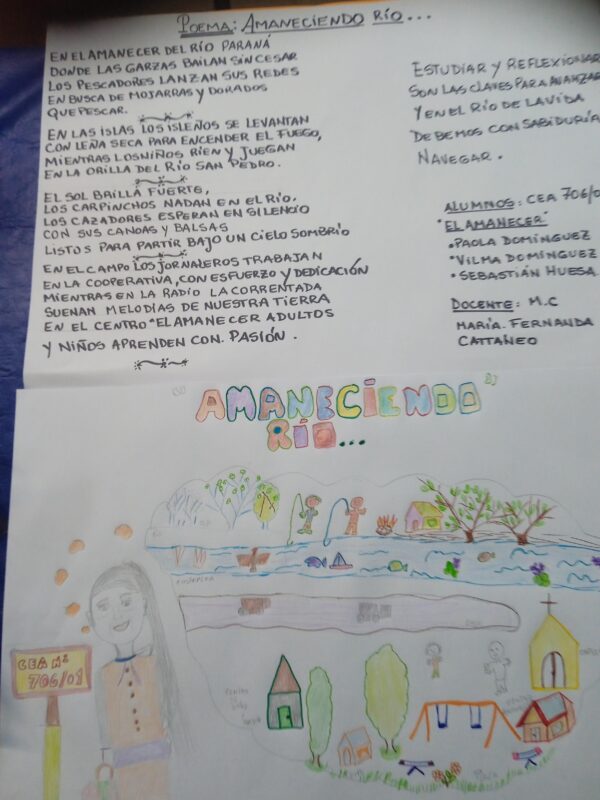 POEMA: AMANECIENDO RÍO...
EN EL AMANECER DEL RÍO PARANÁ
DONDE LAS GARZAS BAILAN SIN CESAR
LOS PESCADORES LANZAN SUS REDES
EN BUSCA DE MOJARRAS Y DORADOS
QUE PESCAR.
EN LAS ISLAS LOS ISLEÑOS SE LEVANTAN
CON LEÑA SECA PARA ENCENDER EL FUEGO,
MIENTRAS LOS NIÑOS RIEN Y JUEGAN
EN LA ORILLA DEL RÍO SAN PEDRO.
EL SOL BRILLA FUERTE,
LOS CARPINCHOS NADAN EN EL RÍO.
LOS CAZADORES ESPERAN EN SILENCIO
CON SUS CANOAS Y BALSAS
LISTOS PARA PARTIR BAJO UN CIELO SOMBRÍO
EN EL CAMPO LOS JORNALEROS TRABAJAN
EN LA COOPERATIVA, CON ESFUERZO Y DEDICACIÓN
MIENTRAS EN LA RADIO LA CORRENTADA
SUENAN MELODÍAS DE NUESTRA TIERRA
EN EL CENTRO "EL AMANECER ADULTOS
Y NIÑOS APRENDEN CON PASIÓN.
ESTUDIAR Y REFLEXIONAR
SON LAS CLAVES PARA AVANZAR
Y EN EL RÍO DE LA VIDA
DEBEMOS CON SABIDURÍA
NAVEGAR.
ALUMNOS: CEA 706/0
"EL AMANECER"
• PAOLA DOMÍNGUEZ
• VILMA DOMÍNGUEZ
• SEBASTIÁN HUESA.
DOCENTE: M.C
MARÍA FERNANDA
CATTÁNEO
AMANECIENDO
RÍO...
CEA Nº
706/01